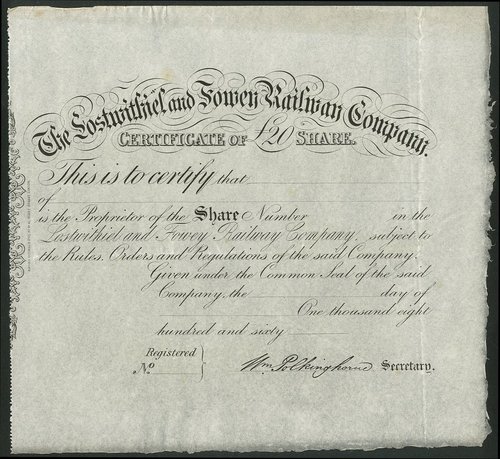 The Lostwithiel and Fowey Railway Company.
CERTIFICATE OF £20 SHARE.
This is to certify that
of
is the Proprietor of the Share Number in the
Lostwithiel and Fowey Railway Company, subject to
the Rules, Orders and Regulations of the said Company.
Given under the Common Seal of the said
Company, the day of
One thousand eight
hundred and sixty
Registered
No.
Wm. Polkinghorne Secretary.